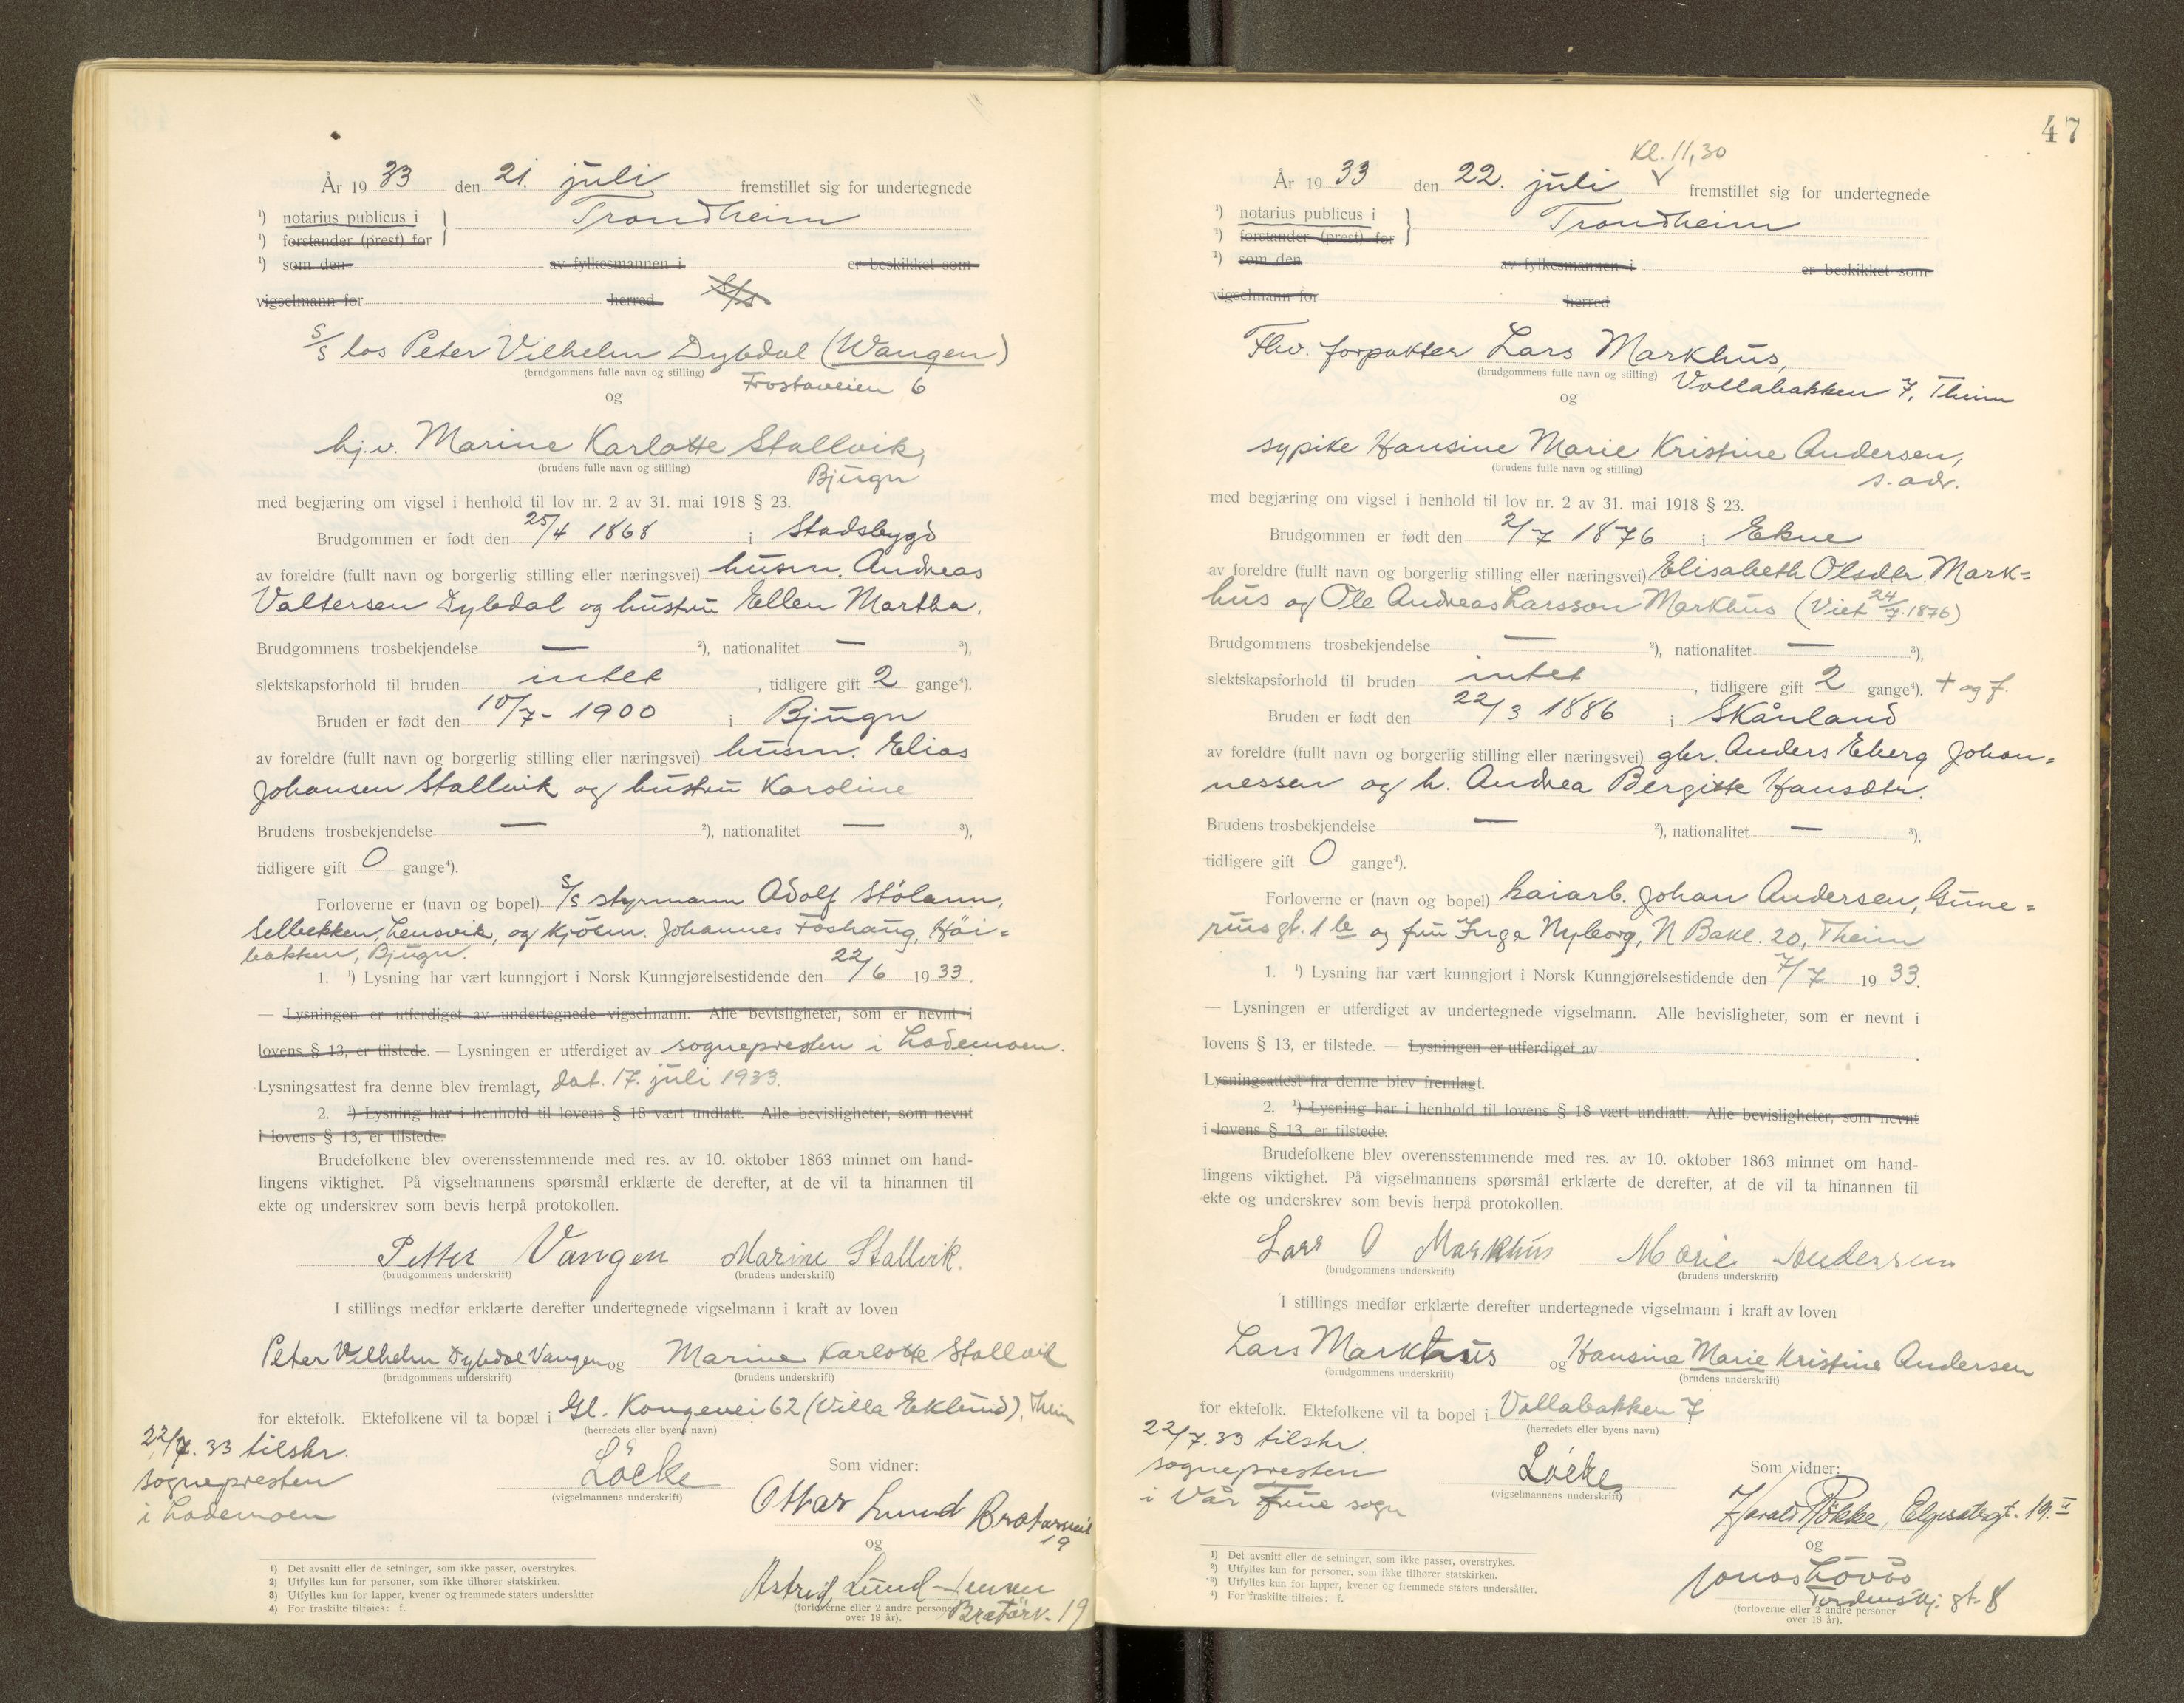 År 19 33 den 21. juli fremstillet sig for undertegnede
¹) notarius publicus i
¹) forstander (prest) for
Trondheim
¹) som den av fylkesmannen i er beskikket som
vigselmann for herred S/s
S/S los Peter Vilhelm Dybdal (Wangen)
(brudgommens fulle navn og stilling)
Frostaveien 6
og
hj.v. Marine Karlotte Stallvik,
(brudens fulle navn og stilling)
Bjugn
med begjæring om vigsel i henhold til lov nr. 2 av 31. mai 1918 § 23.
Brudgommen er født den 25/4 1868 i Stadsbygd
av foreldre (fullt navn og borgerlig stilling eller næringsvei) husm. Andreas
Valtersen Dybdal og hustru Ellen Martha.
Brudgommens trosbekjendelse — ²), nationalitet — ³),
slektskapsforhold til bruden intet, tidligere gift 2 gange⁴).
Bruden er født den 10/7- 1900 i Bjugn
av foreldre (fullt navn og borgerlig stilling eller næringsvei) husm. Elias
Johansen Stallvik og hustru Karoline
Brudens trosbekjendelse — ²), nationalitet — ³),
tidligere gift 0 gange⁴).
Forloverne er (navn og bopel) S/s styrmann Adolf Stölann,
Selbekken, Lensvik, og kjöbm. Johannes Foshaug, Höi=
bakken, Bjugn.
1. ¹) Lysning har vært kunngjort i Norsk Kunngjørelsestidende den 22/6 1933.
— Lysningen er utferdiget av undertegnede vigselmann. Alle bevisligheter, som er nevnt i
lovens § 13, er tilstede. — Lysningen er utferdiget av sognepresten i Lademoen.
Lysningsattest fra denne blev fremlagt, dat. 17. juli 1933.
2. ¹) Lysning har i henhold til lovens § 18 vært undlatt. Alle bevisligheter, som nevnt
i lovens § 13, er tilstede.
Brudefolkene blev overensstemmende med res. av 10. oktober 1863 minnet om hand-
lingens viktighet. På vigselmannens spørsmål erklærte de derefter, at de vil ta hinannen til
ekte og underskrev som bevis herpå protokollen.
Petter Vangen Marine Stallvik.
(brudgommens underskrift) (brudens underskrift)
I stillings medfør erklærte derefter undertegnede vigselmann i kraft av loven
Peter Vilhelm Dybdal Vangen og Marine Karlotte Stallvik
(brudgommens underskrift) (brudens underskrift)
for ektefolk. Ektefolkene vil ta bopæl i Gl. Kongevei 62 (Villa Eklund), Theim
(herredets eller byens navn)
22/7. 33 tilskr.
sognepresten
i Lademoen
Löcke
(vigselmannens underskrift)
Som vidner:
Ottar Lund
19
og
Astrid Lund-Jensen
(forloverne eller 2 andre personer
over 18 år).
Bratörv. 19
1) Det avsnitt eller de setninger, som ikke passer, overstrykes.
2) Utfylles kun for personer, som ikke tilhører statskirken.
3) Utfylles kun for lapper, kvener og fremmede staters undersåtter
4) For fraskilte tilføies: f.
47
Kl. 11,30
År 19 33 den 22. juli fremstillet sig for undertegnede
¹) notarius publicus i
¹) forstander (prest) for
Trondheim
¹) som den av fylkesmannen i er beskikket som
vigselmann for herred
Fhv. forpakter Lars Markhus,
(brudgommens fulle navn og stilling)
Vollabakken 7, Theim
og
sypike Hansine Marie Kristine Andersen,
(brudens fulle navn og stilling)
s. adr.
med begjæring om vigsel i henhold til lov nr. 2 av 31. mai 1918 § 23.
Brudgommen er født den 2/7 1876 i Ekne
av foreldre (fullt navn og borgerlig stilling eller næringsvei) Elisabeth Olsdtr. Mark=
hus og Ole Andreas Larsson Markhus (Viet 24/7.1876)
Brudgommens trosbekjendelse — ²), nationalitet — ³),
slektskapsforhold til bruden intet, tidligere gift 2 gange⁴). + og f.
Bruden er født den 22/3 1886 i Skånland
av foreldre (fullt navn og borgerlig stilling eller næringsvei) gbr. Anders Eberg Johan=
nessen og h. Andrea Bergitte Hansdtr.
Brudens trosbekjendelse — ²), nationalitet — ³),
tidligere gift 0 gange⁴).
Forloverne er (navn og bopel) kaiarb. Johan Andersen, Gune=
rius gt. 1 b og fru Inga Nyborg, N Bakl. 20, Theim
1. ¹) Lysning har vært kunngjort i Norsk Kunngjørelsestidende den 7/7 1933.
— Lysningen er utferdiget av undertegnede vigselmann. Alle bevisligheter, som er nevnt i
lovens § 13, er tilstede. — Lysningen er utferdiget av
Lysningsattest fra denne blev fremlagt.
2. ¹) Lysning har i henhold til lovens § 18 vært undlatt. Alle bevisligheter, som nevnt
i lovens § 13, er tilstede.
Brudefolkene blev overensstemmende med res. av 10. oktober 1863 minnet om hand-
lingens viktighet. På vigselmannens spørsmål erklærte de derefter, at de vil ta hinannen til
ekte og underskrev som bevis herpå protokollen.
Lars O Markhus Marie Andersen
(brudgommens underskrift) (brudens underskrift)
I stillings medfør erklærte derefter undertegnede vigselmann i kraft av loven
Lars Markhus og Hansine Marie Kristine Andersen
(brudgommens underskrift) (brudens underskrift)
for ektefolk. Ektefolkene vil ta bopel i Vollabakken 7
(herredets eller byens navn)
22/7. 33 tilskr.
sognepresten
i Vår Frue sogn
Löcke
(vigselmannens underskrift)
Som vidner:
Harald Rökke, Elgesetergt. 19.II
og
Jonas Lövås
Tordenskj. gt. 8
(forloverne eller 2 andre personer
over 18 år).
1) Det avsnitt eller de setninger, som ikke passer, overstrykes.
2) Utfylles kun for personer, som ikke tilhører statskirken.
3) Utfylles kun for lapper, kvener og fremmede staters undersåtter.
4) For fraskilte tilføies: f.